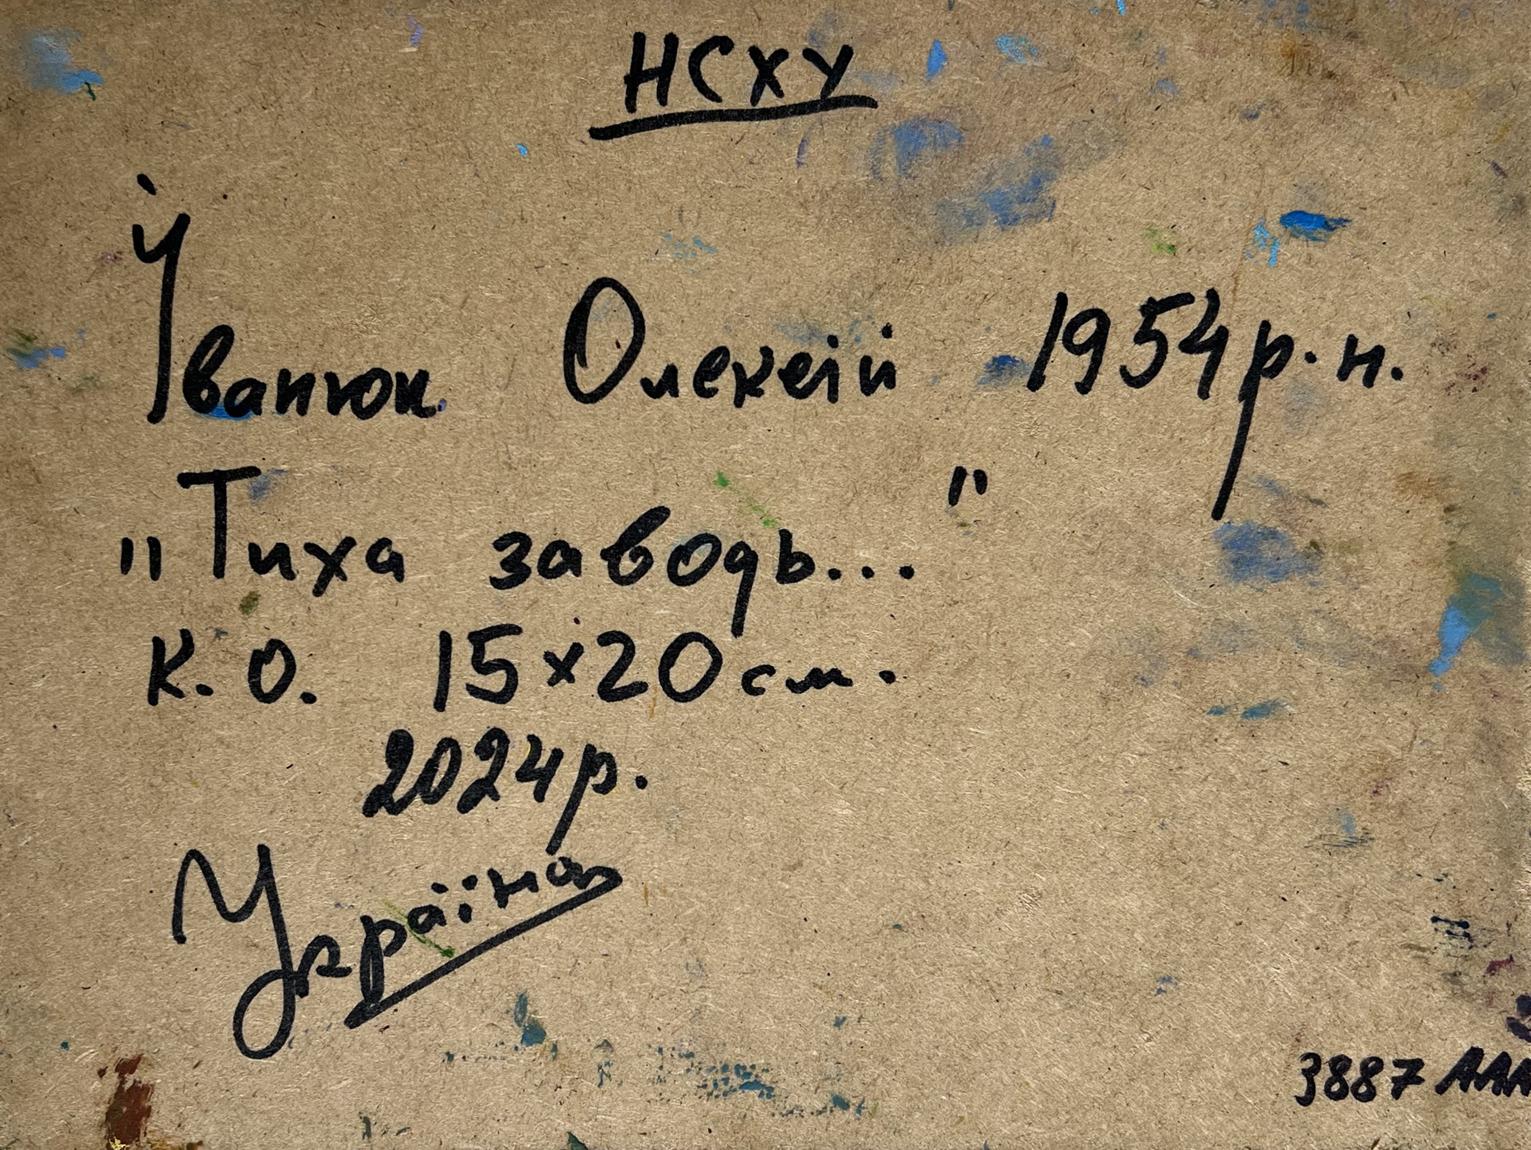 НСХУ
Іванюк Олексій 1954р.н.
"Тиха заводь..."
К.О. 15х20см.
2024р.
Україна
3887 ААА